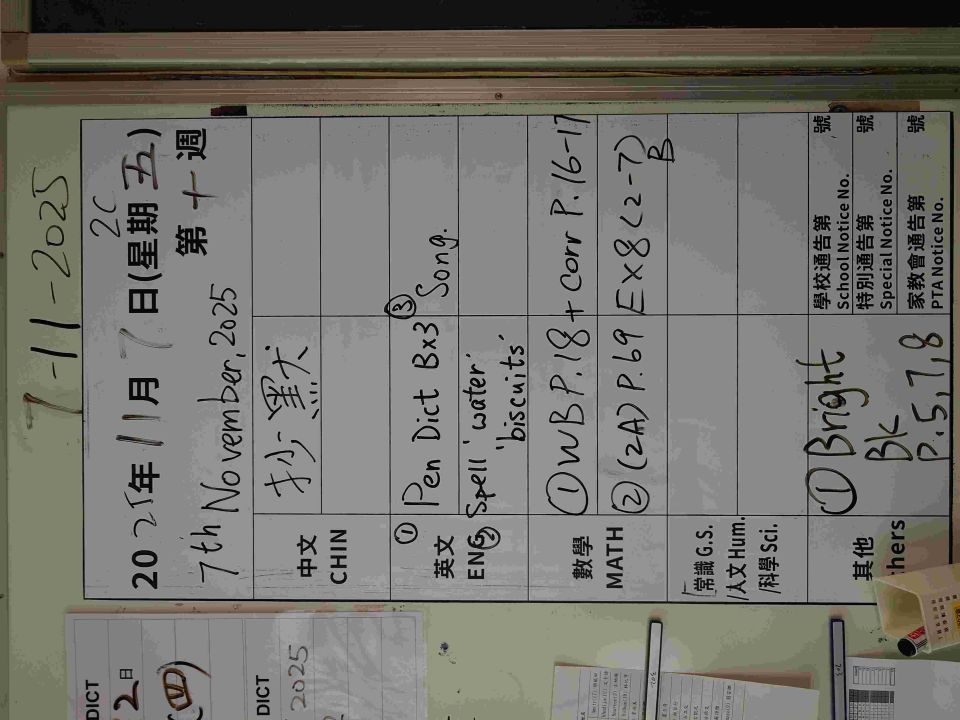 7-11-2025
2C
2025年11月7日(星期五)
7th November, 2025
第十週
中文
CHIN
抄默
英文
ENG
① Pen Dict Bx3
② Spell 'water'
'biscuits'
③ Song.
數學
MATH
① WB P.18 + Corr P.16-17
② (2A) P.69 Ex8 (2-7)
B
常識 G.S.
/人文 Hum.
/科學 Sci.
其他
hers
① Bright
Bk
P.5,7,8
學校通告第 號
School Notice No.
特別通告第 號
Special Notice No.
家教會通告第 號
PTA Notice No.
DICT
2日
(四)
DICT
2025